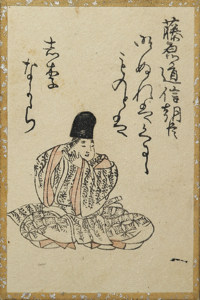 藤原道信朝臣
明ぬれはくるゝ
ものとは
志り
なから